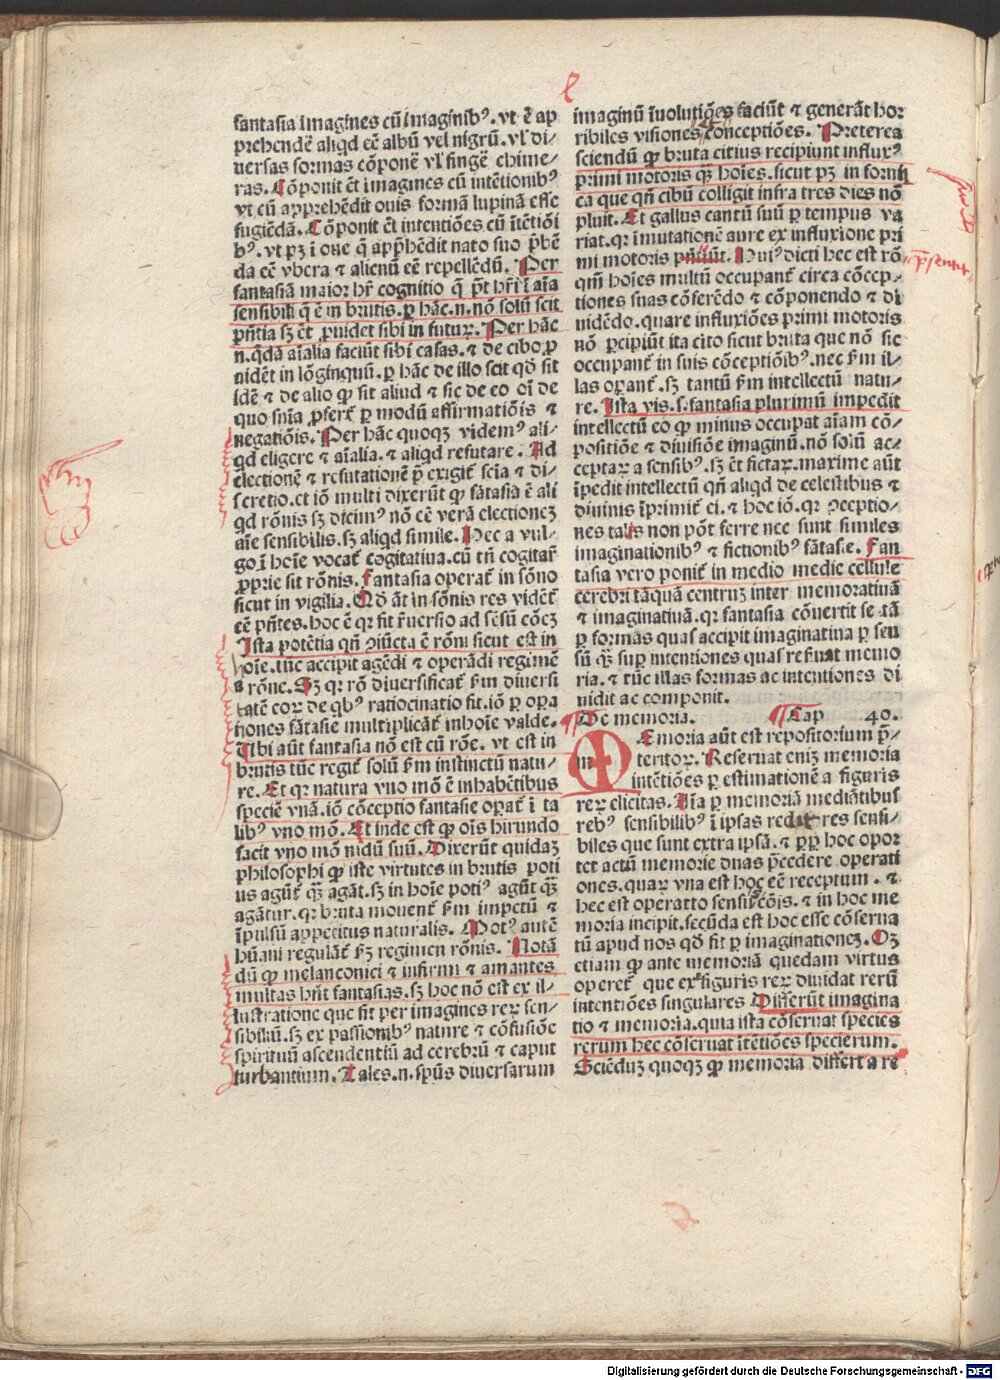 l
fantasia imagines cū imaginibꝰ. vt ē ap
prehendē̄ aliqd eē albū vel nigrū. vl̄ di⸗
uersas formas cōponē̄ vl̄ fingē̄ chime⸗
ras. Cōponit ēt imagines cū intētionibꝰ
vt cū apprehēdit ouis formā lupinā esse
fugiēdā. Cōponit ēt intentiōes cū ītētiōi
bꝰ. vt pꝫ ī oue q̄ app̄hēdit nato suo p̄bē
da eē vbera ⁊ alienū eē repellēdū. Per
fantasiā maior hr̄ cognitio q̄ p̄t hr̄i ī aīa
sensibili q̄ ē in brutis. ꝑ hāc.n.nō solū scit
pn̄tia sꝫ ēt ꝓuidet sibi in futuꝝ. Per hāc
n. q̄dā aīalia faciūt sibi casas. ⁊ de cibo ꝓ
uidēt in lōginquū. ꝑ hāc de illo scit qd̄ sit
idē ⁊ de alio ꝙ sit aliud ⁊ sic de eo eī de
quo snīa ꝓfert̄ ꝑ modū affirmatiōis ⁊
negatiōis. Per hāc quoqꝫ videmꝰ ali⸗
qd eligere ⁊ aīalia. ⁊ aliqd refutare. Ad
electionē ⁊ refutationē p̄ exigit̄ scīa ⁊ di⸗
scretio. et iō multi dixerūt ꝙ fātasia ē ali
qd rōnis sꝫ dicimꝰ nō eē verā electioneꝫ
aīe sensibilis. sꝫ aliqd simile. Hec a vul⸗
go ī hoīe vocat̄ cogitatiua. cū tn̄ cogitar̄
ꝓprie sit rōnis. Fantasia operat̄ in sōno
sicut in vigilia. Qd āt in sōnis res vidēt̄
eē pn̄tes. hoc ē qꝛ fit r̄uersio ad sēsū cōeꝫ
Ista potētia qn̄ ꝯiūcta ē rōni sicut est in
hoīe. tūc accipit agēdi ⁊ operādi regimē
a rōne. Sꝫ qꝛ rō diuersificat̄ ẜm diuersi
tatē coꝝ de qbꝰ ratiocinatio fit. iō ꝑ opa
tiones fātasie multiplicāt̄ in hoīe valde.
Ubi aūt fantasia nō est cū rōe. vt est in
brutis tūc regit̄ solū ẜm instinctū natu⸗
re. Et qꝛ natura vno mō ē inhabētibus
speciē vnā. iō cōceptio fantasie operat̄ ī ta
libꝰ vno mō. Et inde est ꝙ oīs hirundo
facit vno mō nidū suū. Dixerūt quidaꝫ
philosophi ꝙ iste virtutes in brutis poti
us agūt̄ qꝫ agāt. sꝫ in hoīe potiꝰ agūt qꝫ
agātur. qꝛ bruta mouent̄ ẜm impetū ⁊
īpulsū appetitus naturalis. Motꝰ autē
hūani regulāt̄ ẜꝫ regimen rōnis. Notā
dū ꝙ melanconici ⁊ infirmi ⁊ amantes
multas hn̄t fantasias. sꝫ hoc nō est ex il⸗
lustratione que fit per imagines reꝝ sen⸗
sibiliū. sꝫ ex passionibꝰ nature ⁊ cōfusiōe
spirituū ascendentiū ad cerebrū ⁊ caput
turbantium. Tales.n.spūs diuersarum
imaginū īuolutiōes faciūt ⁊ generāt hor
ribiles visiones ⁊ conceptiōes. Preterea
sciendū ꝙ bruta citius recipiunt influxꝰ
primi motoris qꝫ hoīes. sicut pꝫ in formi
ca que qn̄ cibū colligit infra tres dies nō
pluit. Et gallus cantū suū ꝑ tempus va
riat. qꝛ īmutationē aure ex influxione pri
mi motoris p̄n̄tiūt. Huiꝰ dicti hec est rō
qm̄ hoīes multū occupant̄ circa cōcep⸗
tiones suas cōferēdo ⁊ cōponendo ⁊ di
uidēdo. quare influxiōes primi motoris
nō ꝑcipiūt ita cito sicut bruta que nō sic
occupant̄ in suis cōceptiōibꝰ. nec ẜm il⸗
las oꝑant̄. sꝫ tantū ẜm intellectū natu⸗
re. Ista vis.s.fantasia plurimū impedit
intellectū eo ꝙ minus occupat aīam cō⸗
positiōe ⁊ diuisiōe imaginū. nō solū ac⸗
ceptaꝝ a sensibꝰ. sꝫ ēt fictaꝝ. maxime aūt
īpedit intellectū qn̄ aliqd de celestibus ⁊
diuinis īprimit̄ ei. ⁊ hoc iō. qꝛ ꝯceptio⸗
nes tales non pōt ferre nec sunt similes
imaginationibꝰ ⁊ fictionibꝰ fātasie. Fan
tasia vero ponit̄ in medio medie cellule
cerebri tāquā centruꝫ inter memoratiuā
⁊ imaginatiuā. qꝛ fantasia cōuertit se tā
ꝑ formas quas accipit imaginatiua ꝑ sen
sū qꝫ suꝑ intentiones quas reẜuat memo
ria. ⁊ tūc illas formas ac intentiones di
uidit ac componit.
De memoria. Cap 40.
Memoria aūt est repositorium p̄⸗
teritoꝝ. Reseruat enīꝫ memoria
intētiōes ꝑ estimationē a figuris
reꝝ elicitas. Aīa ꝑ memoriā mediātibus
rebꝰ sensibilibꝰ ī ipsas redit res sensi⸗
biles que sunt extra ipsā. ⁊ ꝓp̄ hoc opor
tet actū memorie duas p̄cedere operati
ones. quaꝝ vna est hoc eē receptum. ⁊
hec est operatio sensꝰ cōis. ⁊ in hoc me
moria incipit. secūda est hoc esse cōserua
tū apud nos qd̄ fit ꝑ imaginationeꝫ. Oꝫ
etiam ꝙ ante memoriā quedam virtus
operet̄ que ex figuris reꝝ diuidat rerū
intentiōes singulares. Differūt imagina
tio ⁊ memoria. quia ista cōseruat species
rerum hec cōseruat ītētiōes specierum.
Sciēduꝫ quoqꝫ ꝙ memoria differt a re
Digitalisierung gefördert durch die Deutsche Forschungsgemeinschaft - DFG